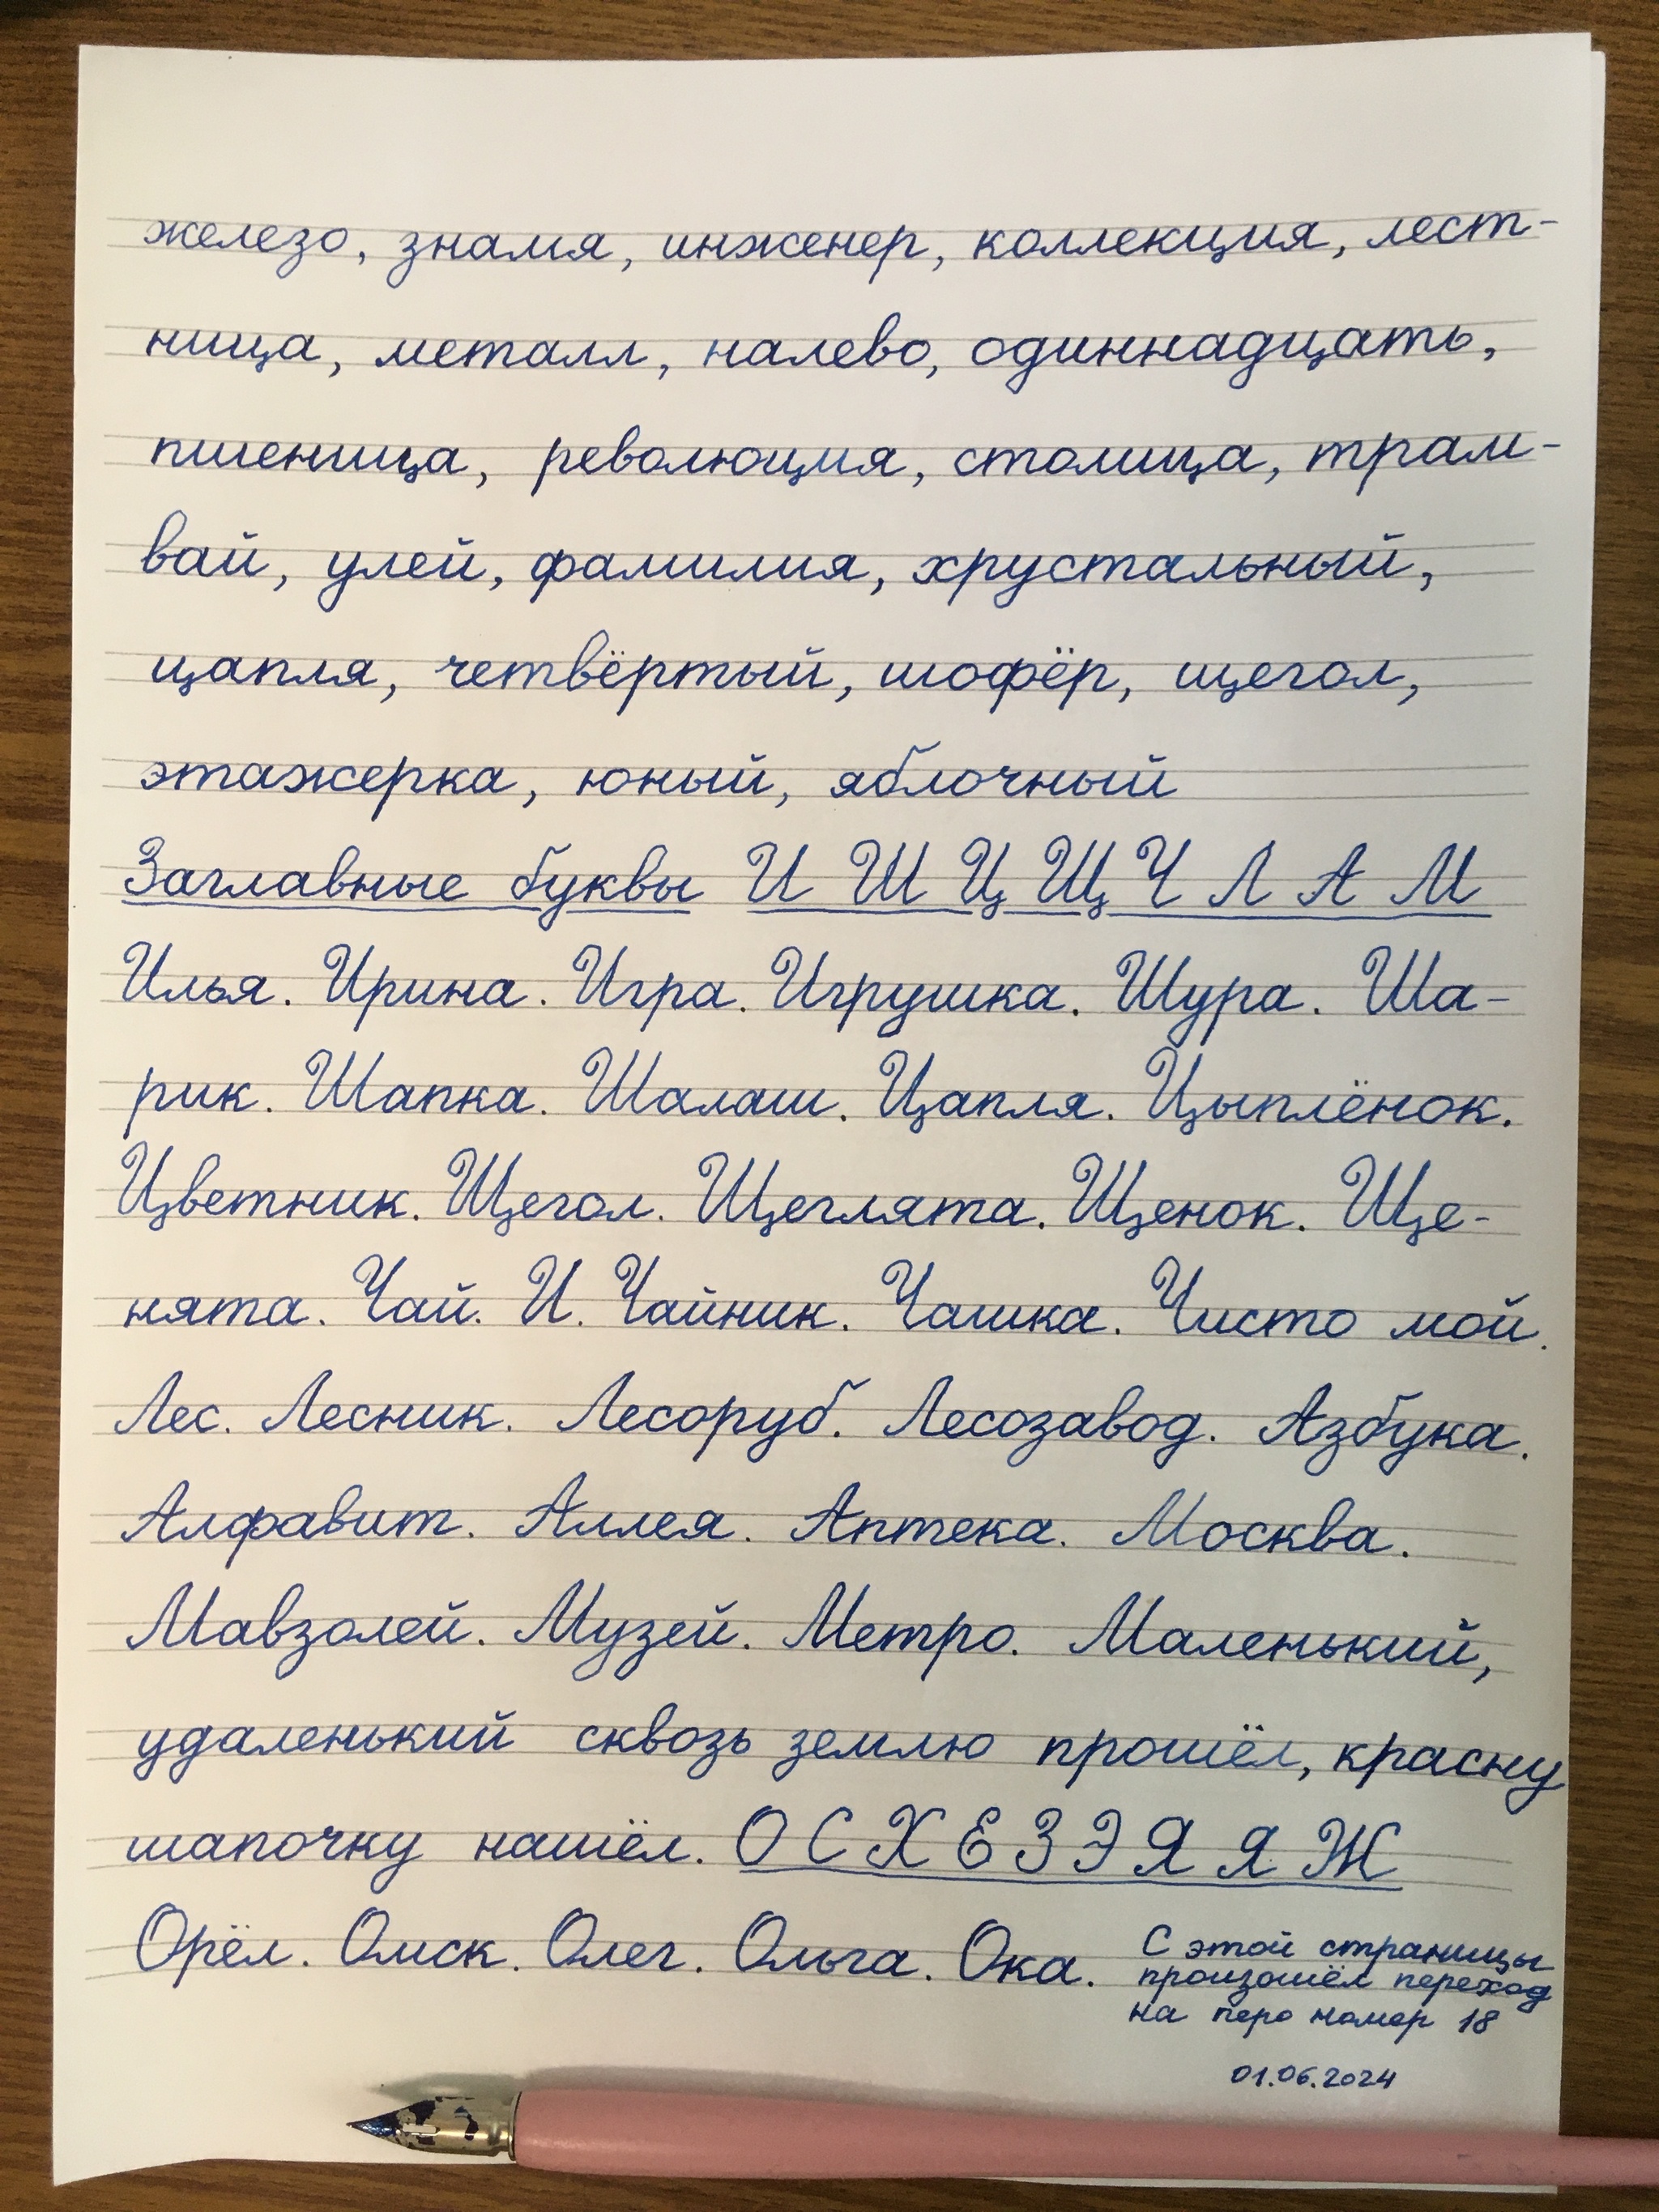 железо, знамя, инженер, коллекция, лест-
ница, металл, налево, одиннадцать,
пшеница, революция, столица, трам-
вай, улей, фамилия, хрустальный,
цапля, четвёртый, шофёр, щегол,
этажерка, юный, яблочный
Заглавные буквы И Ш Ц Щ Ч Л А М
Илья. Ирина. Игра. Игрушка. Шура. Ша-
рик. Шапка. Шалаш. Цапля. Цыплёнок.
Цветник. Щегол. Щеглята. Щенок. Ще-
нята. Чай. И. Чайник. Чашка. Чисто мой.
Лес. Лесник. Лесоруб. Лесозавод. Азбука.
Алфавит. Аллея. Аптека. Москва.
Мавзолей. Музей. Метро. Маленький,
удаленький сквозь землю прошёл, красну
шапочку нашёл. О С Х Е З Э Я Я Ж
Орёл. Омск. Олег. Ольга. Ока.
С этой страницы
произошёл переход
на перо номер 18
01.06.2024